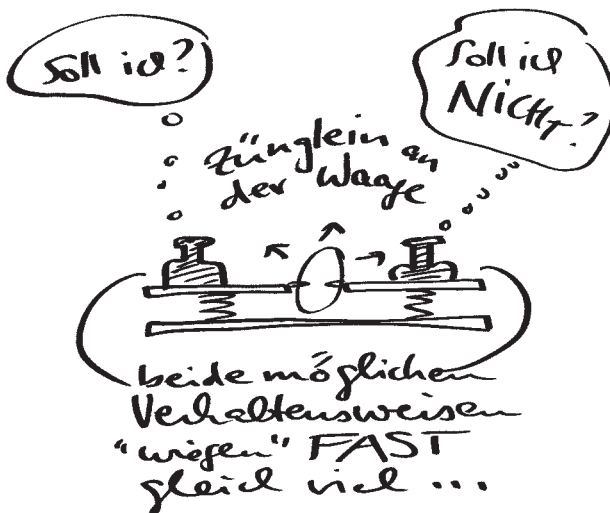 Soll ich?
Soll ich
NICHT?
Zünglein an
der Waage
beide möglichen
Verhaltensweisen
"wiegen" FAST
gleich viel ...